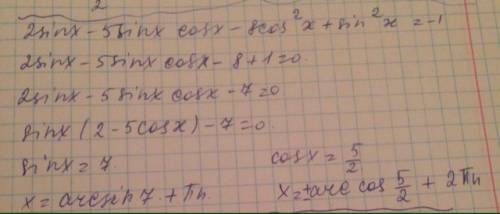 2
2sinx - 5sinx cosx - 8cos²x + sin²x = -1
2sinx - 5sinx cosx - 8 + 1 = 0.
2sinx - 5sinx cosx - 7 = 0
sinx (2 - 5cosx) - 7 = 0
sinx = 7 cosx = 5/2
x = arcsin 7. + πn. x = ±arc cos 5/2 + 2πn